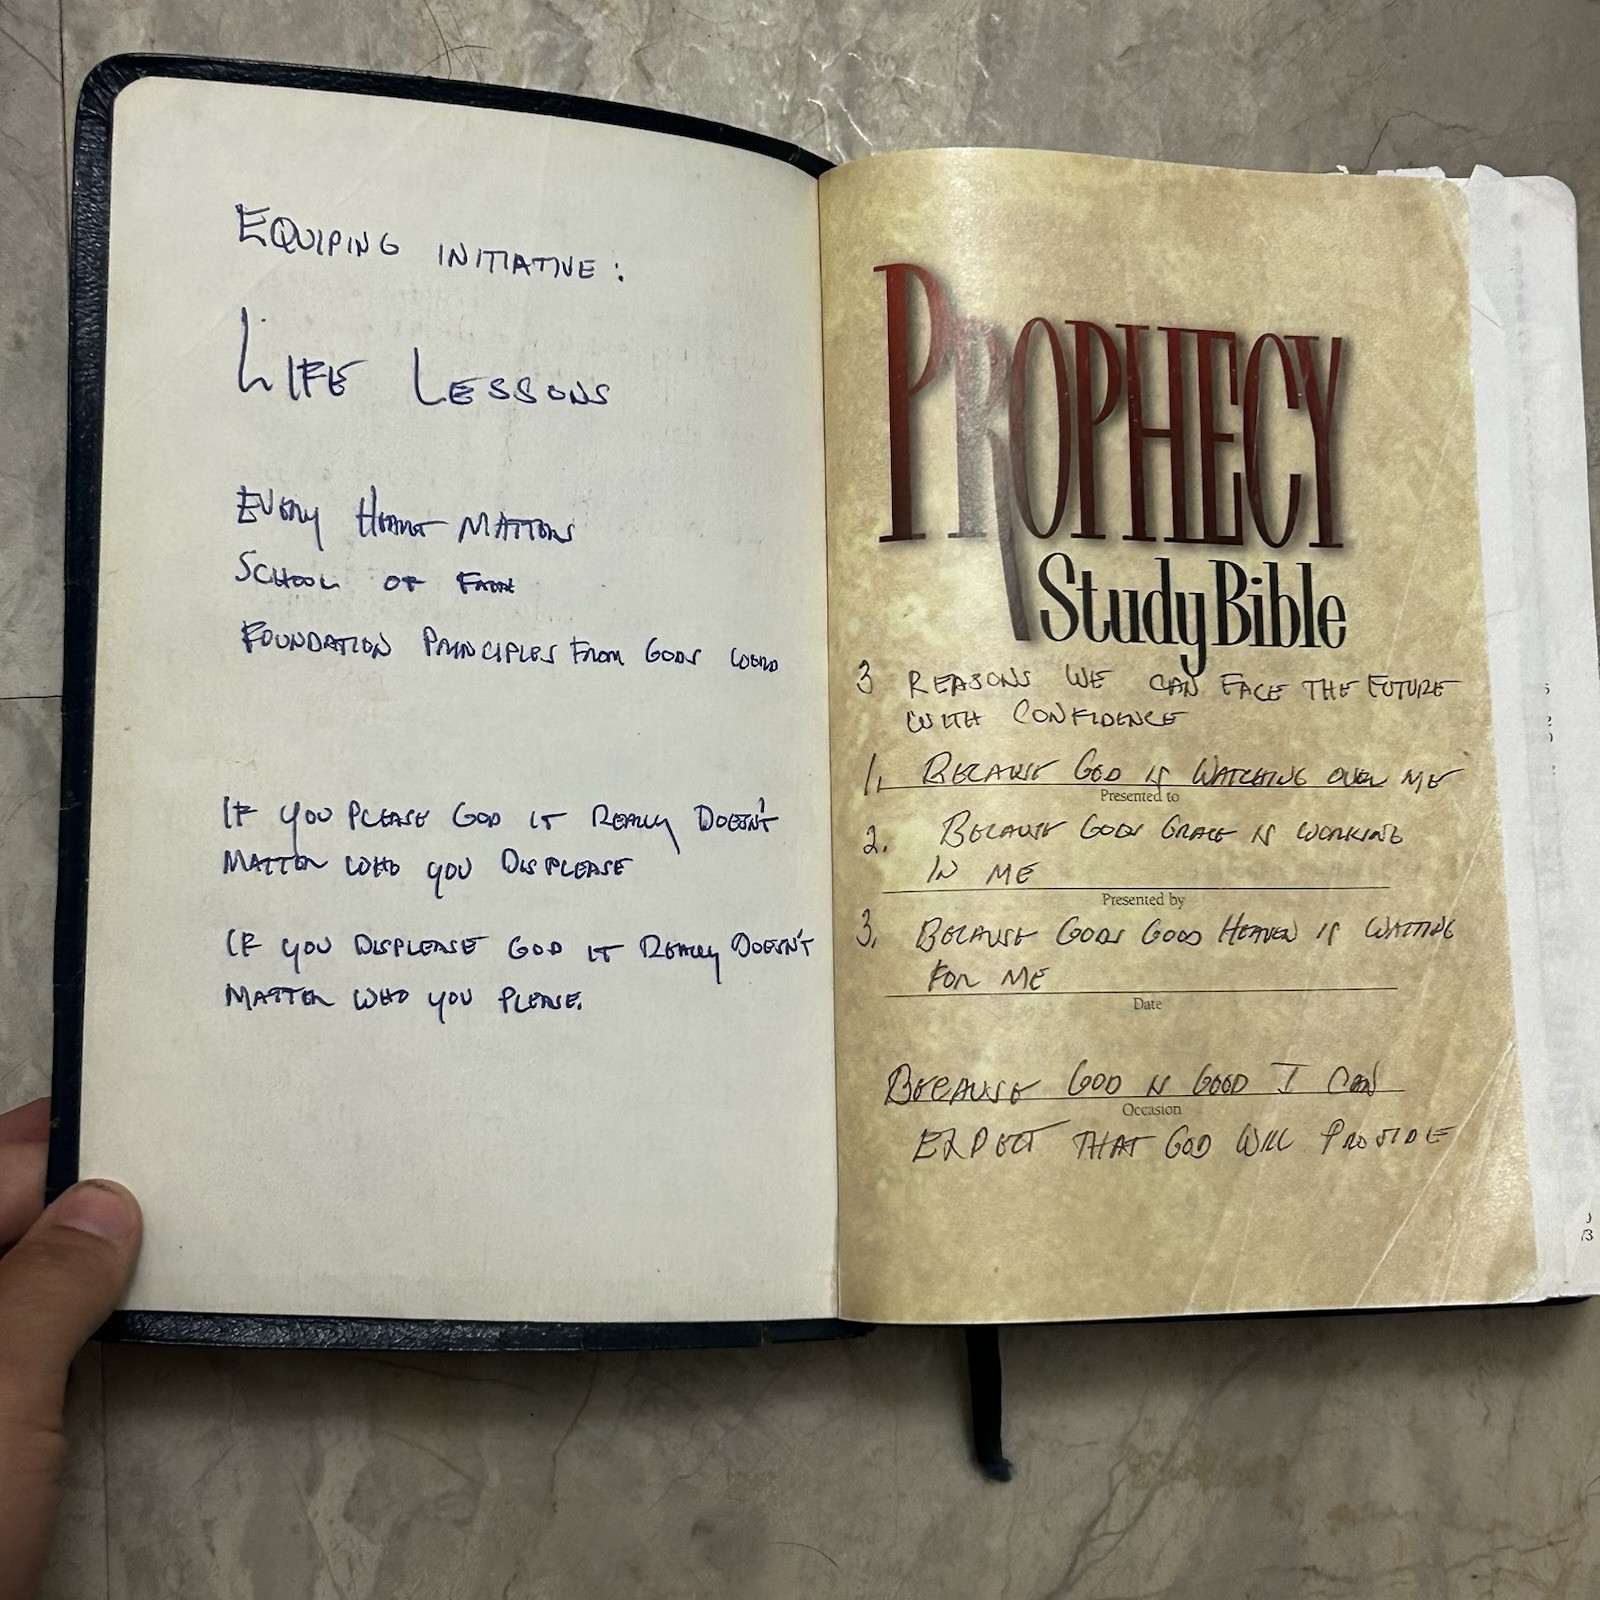 EQUIPING INITIATIVE:
LIFE LESSONS
EVERY HEART MATTERS
SCHOOL OF FAITH
FOUNDATION PRINCIPLES FROM GODS WORD
IF YOU PLEASE GOD IT REALLY DOESN'T
MATTER WHO YOU DISPLEASE
IF YOU DISPLEASE GOD IT REALLY DOESN'T
MATTER WHO YOU PLEASE.
PROPHECY
Study Bible
3 REASONS WE CAN FACE THE FUTURE
WITH CONFIDENCE
1. BECAUSE GOD IS WATCHING OVER ME
Presented to
2. BECAUSE GODS GRACE IS WORKING
IN ME
Presented by
3. BECAUSE GODS GOOD HEAVEN IS WAITING
FOR ME
Date
BECAUSE GOD IS GOOD I CAN
Occasion
EXPECT THAT GOD WILL PROVIDE